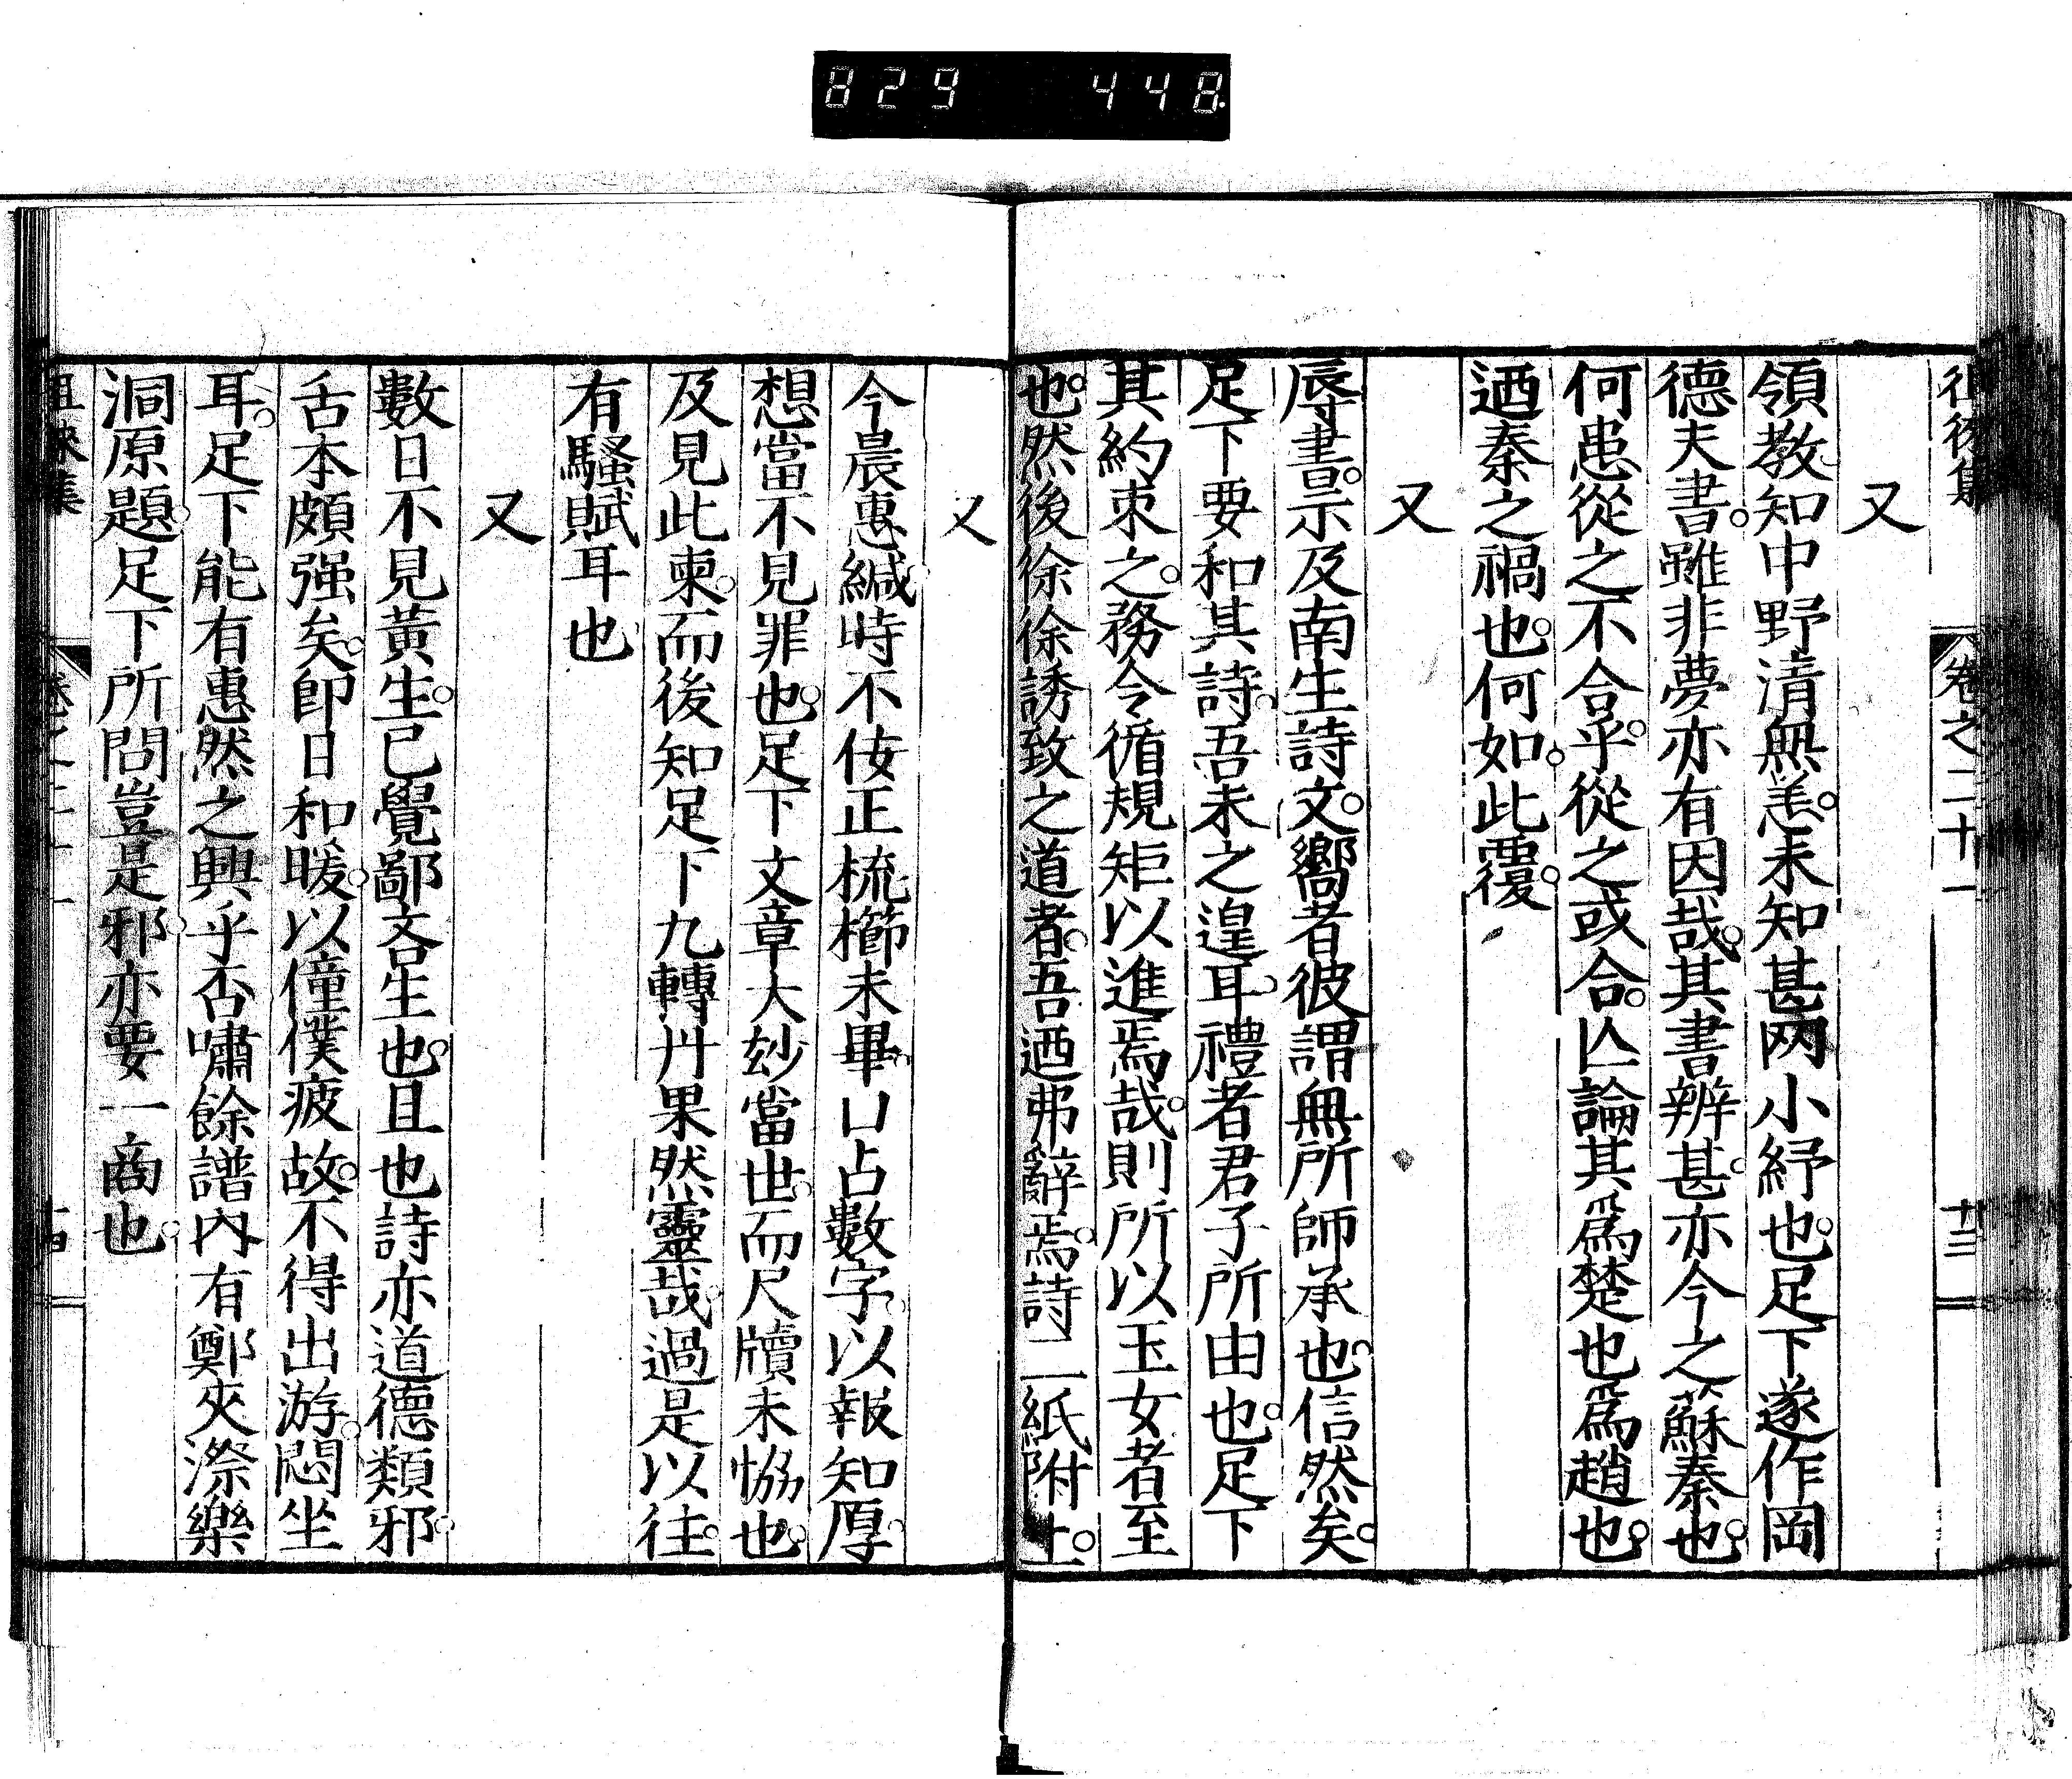 829 448
徂徠集 卷之二十一 十三
又
領教知中野清無恙未知甚两小紓也足下遂作岡
德夫書雖非夢亦有因哉其書辨甚亦今之蘇秦也
何患從之不合乎從之或合亾論其爲楚也爲趙也
迺秦之禍也何如此覆
又
辱書示及南生詩文嚮者彼謂無所師承也信然矣
足下要和其詩吾未之遑耳禮者君子所由也足下
其約束之務令循規矩以進焉哉則所以玉女者至
也然後徐徐誘致之道者吾迺弗辭焉詩二紙附上
又
今晨惠緘時不佞正梳櫛未畢口占數字以報知厚
想當不見罪也足下文章大玅當世而尺牘未恊也
及見此柬而後知足下九轉丹果然靈哉過是以往
有騷賦耳也
又
數日不見黃生已覺鄙吝生也且也詩亦道德類邪
舌本頗强矣卽日和暖以僮僕疲故不得出游悶坐
耳足下能有惠然之興乎否嘯餘譜內有鄭夾漈樂
洞原題足下所問豈是邪亦要一商也
徂徠集 卷之二十一 十四